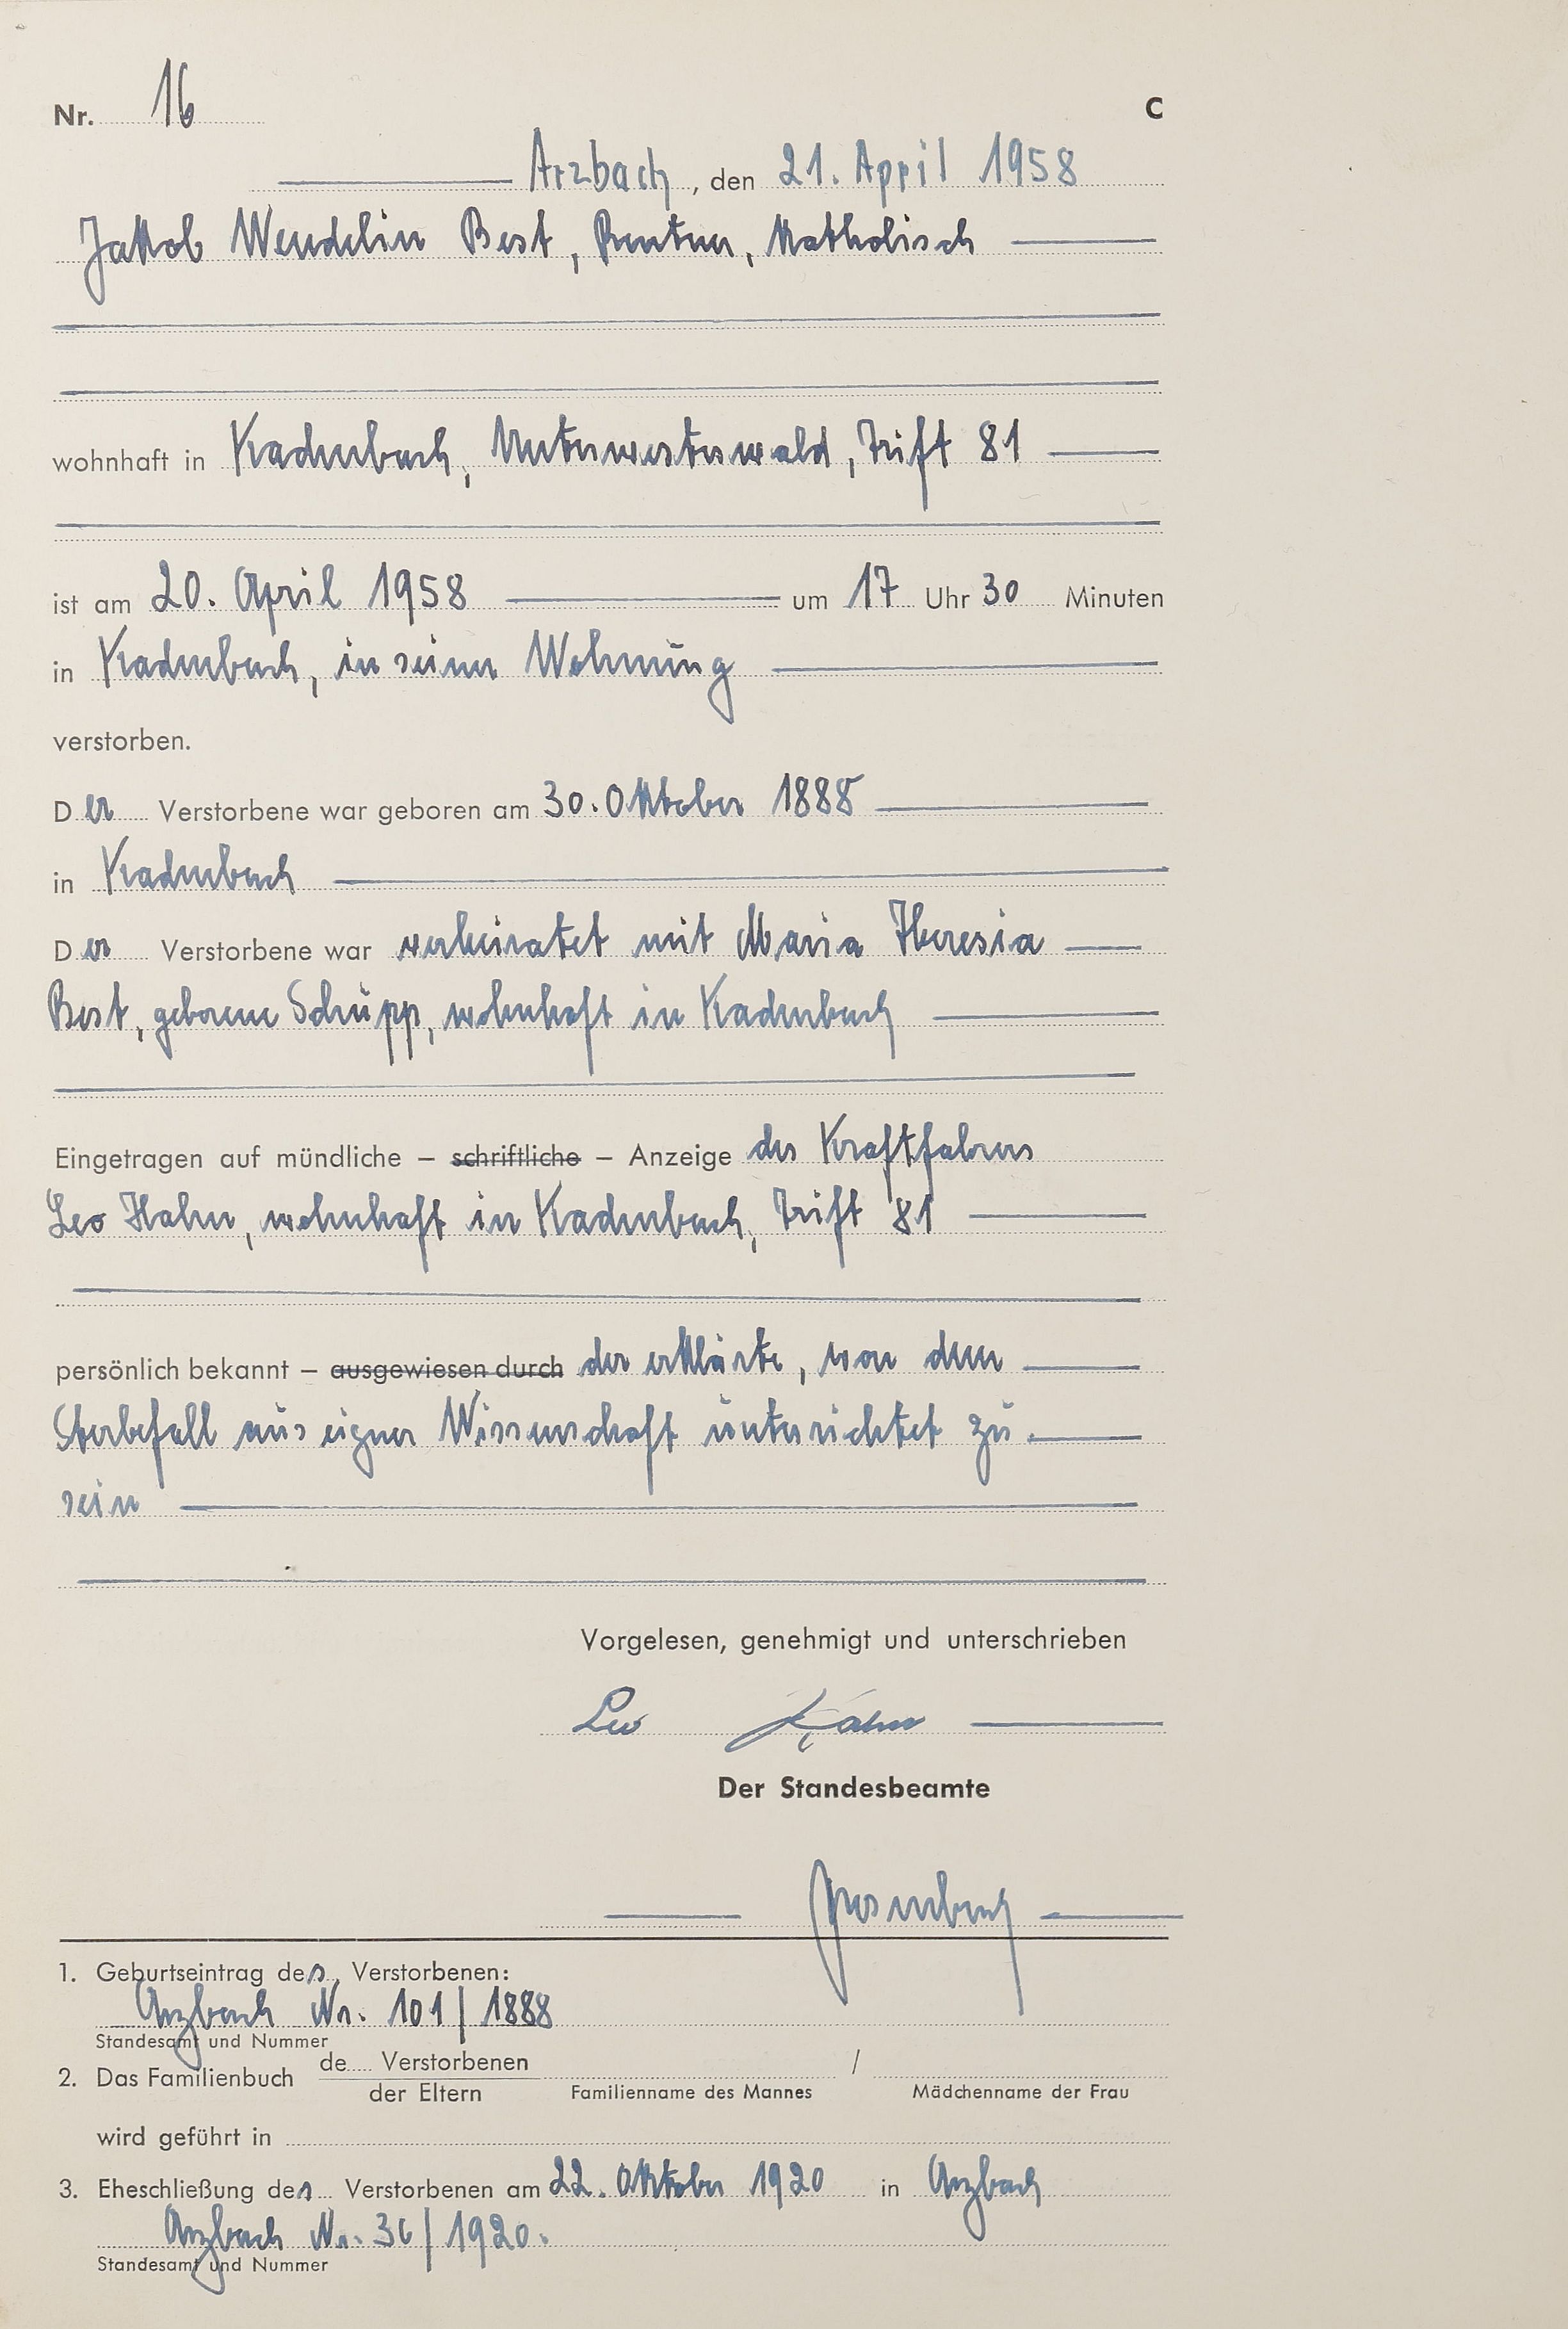 Nr. 16 C
Arzbach, den 21. April 1958
Jakob Wendelin Best, Rentner, katholisch
wohnhaft in Kadenbach, Unterwesterwald, Trift 81
ist am 20. April 1958 um 17 Uhr 30 Minuten
in Kadenbach, in seiner Wohnung
verstorben.
Der Verstorbene war geboren am 30. Oktober 1888
in Kadenbach
Der Verstorbene war verheiratet mit Maria Theresia
Best, geborene Schupp, wohnhaft in Kadenbach
Eingetragen auf mündliche – schriftliche – Anzeige des Kraftfahrers
Leo Hahn, wohnhaft in Kadenbach, Trift 81
persönlich bekannt – ausgewiesen durch der erklärte, von dem
Sterbefall aus eigner Wissenschaft unterrichtet zu
sein
Vorgelesen, genehmigt und unterschrieben
Leo Hahn
Der Standesbeamte
1. Geburtseintrag des Verstorbenen:
Arzbach Nr. 101/1888
Standesamt und Nummer
de Verstorbenen
2. Das Familienbuch /
der Eltern Familienname des Mannes Mädchenname der Frau
wird geführt in
3. Eheschließung des Verstorbenen am 22. Oktober 1920 in Arzbach
Arzbach Nr. 36/1920.
Standesamt und Nummer